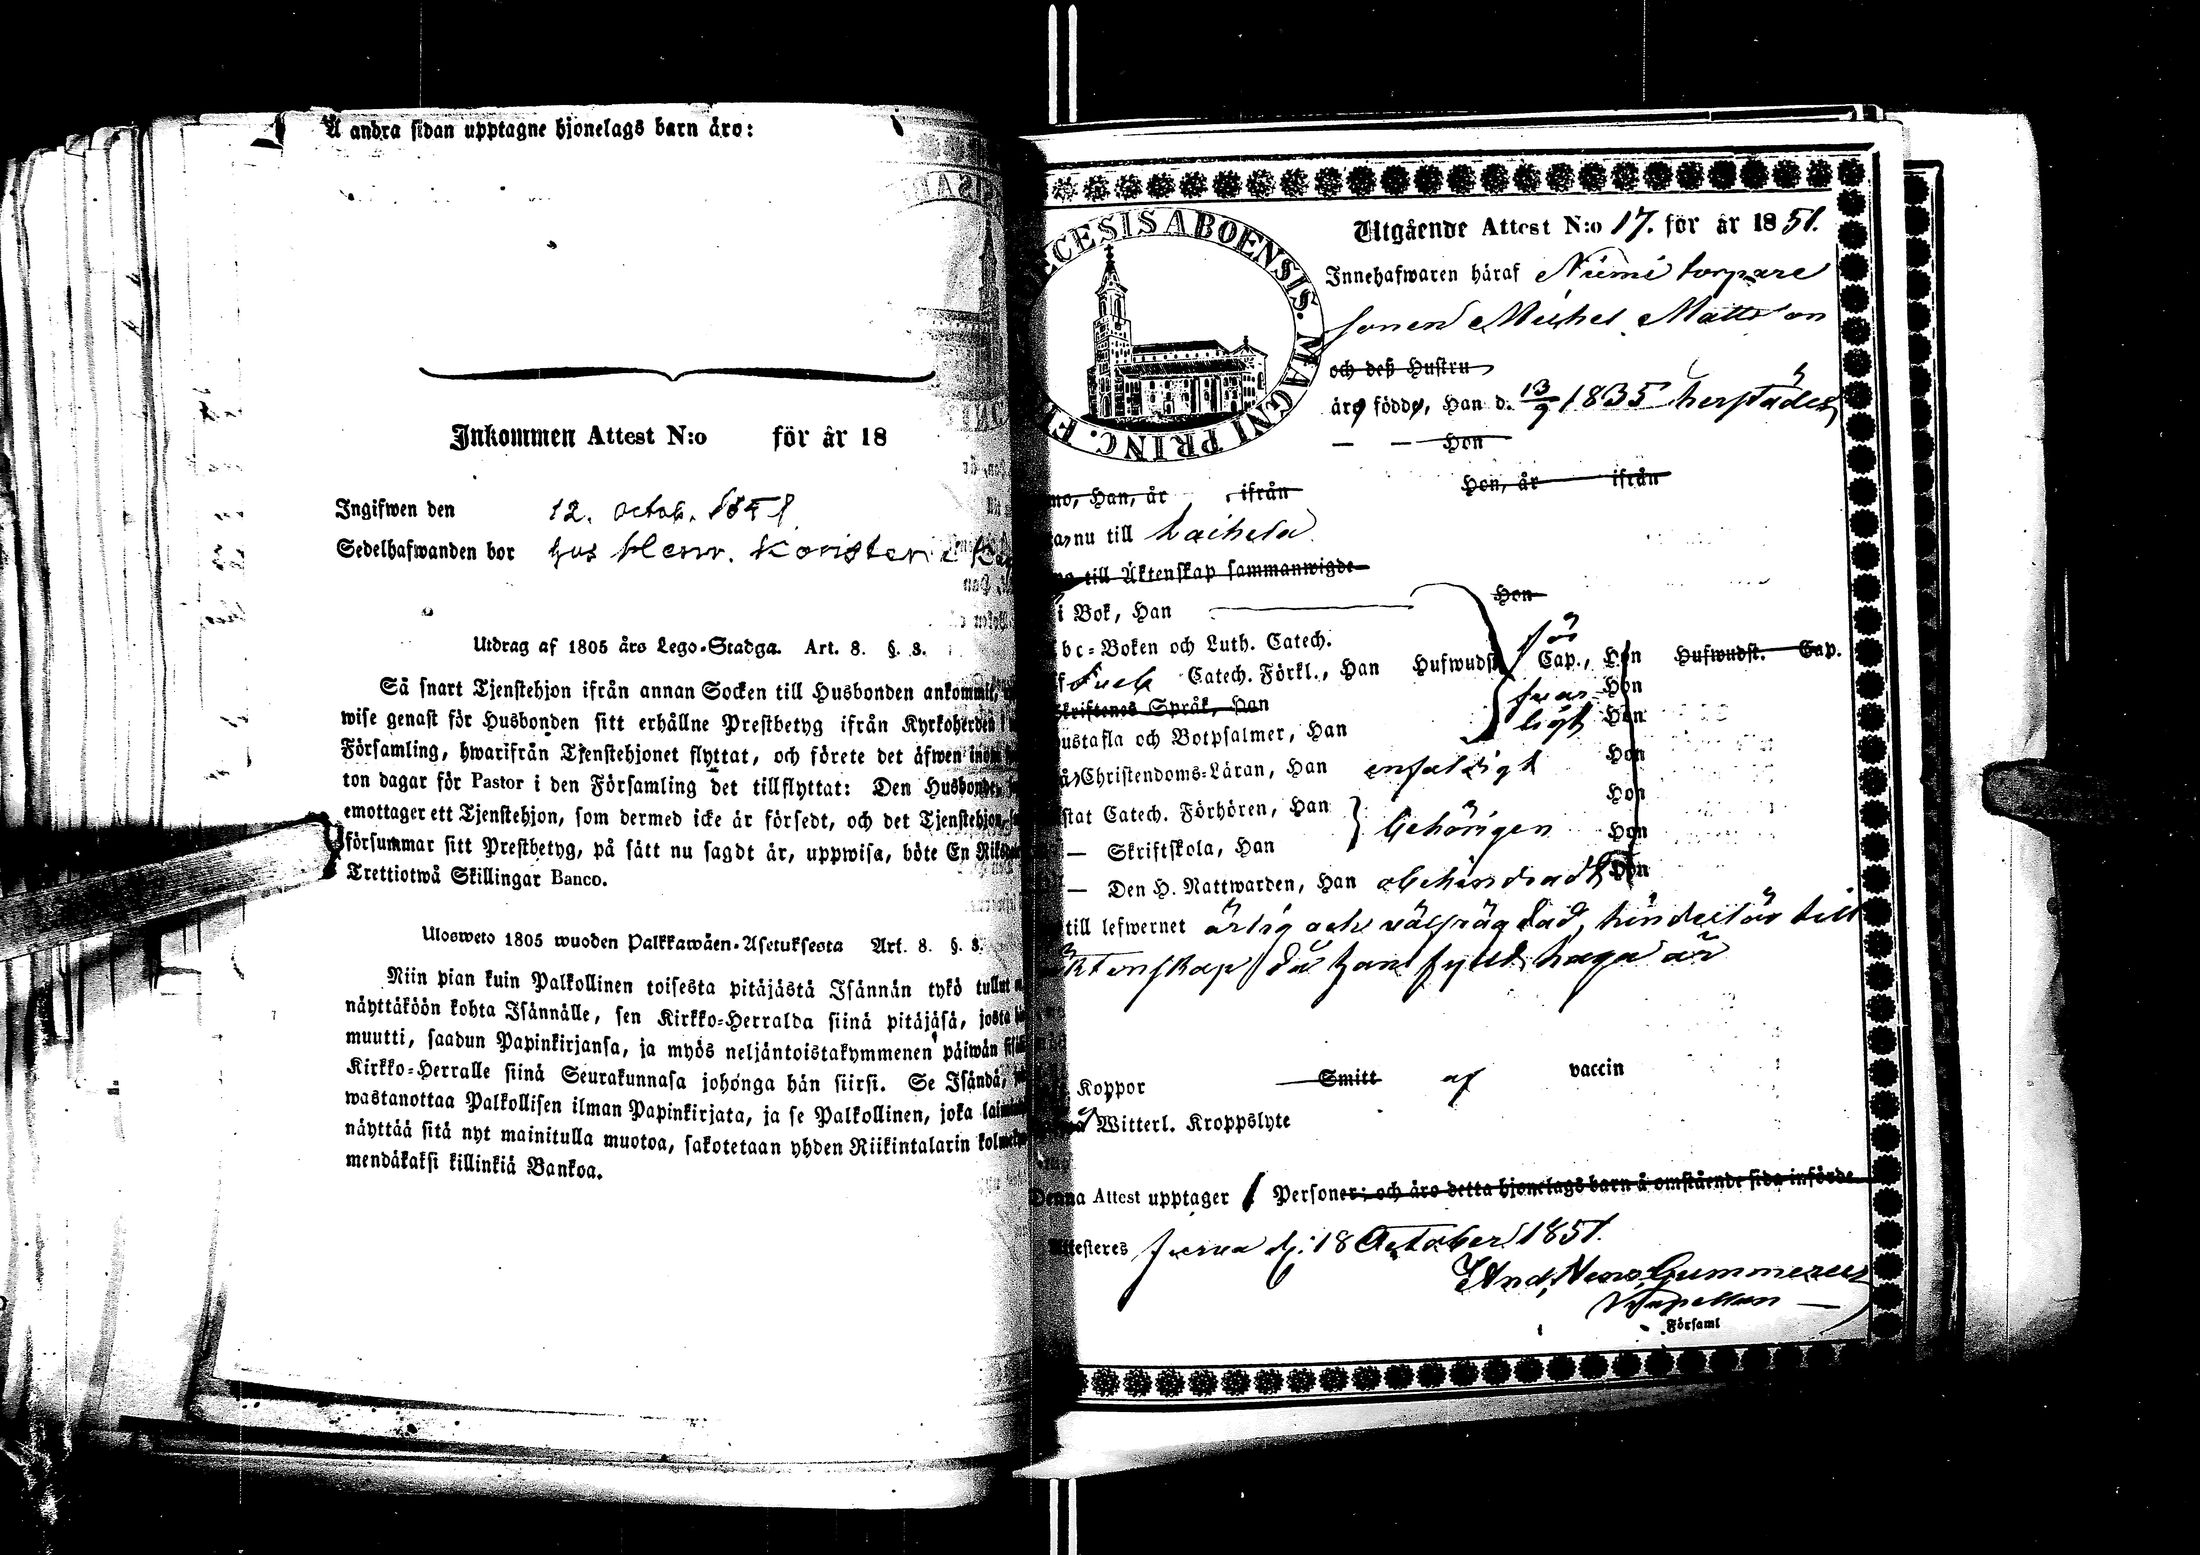 Å andra sidan upptagne hjonelags barn äro:
Inkommen Attest N:o för år 18
Ingifwen den 12. octob. 1851
Sedelhafwanden bor hos Henr. Koristen i
Utdrag af 1805 års Lego-Stadga. Art. 8. §. 3.
Så snart Tjenstehjon ifrån annan Socken till Husbonden ankommit,
wise genast för Husbonden sitt erhållne Prestbetyg ifrån Kyrkoherden i
Församling, hwarifrån Tjenstehjonet flyttat, och förete det äfwen inom
ton dagar för Pastor i den Församling det tillflyttat: Den Husbonde,
emottager ett Tjenstehjon, som dermed icke är försedt, och det Tjenstehjon,
försummar sitt Prestbetyg, på sätt nu sagdt är, uppwisa, böte En Riksd
Trettiotwå Skillingar Banco.
Ulosweto 1805 wuoden Palkkawäen-Asetuksesta Art. 8. §. 3.
Niin pian kuin Palkollinen toisesta pitäjästä Isännän tykö tullut
näyttäköön kohta Isännälle, sen Kirkko-Herralda siinä pitäjäsä, josta
muutti, saadun Papinkirjansa, ja myös neljäntoistakymmenen päiwän
Kirkko-Herralle siinä Seurakunnasa johonga hän siirsi. Se Isändä,
wastanottaa Palkollisen ilman Papinkirjata, ja se Palkollinen, joka
näyttää sitä nyt mainitulla muotoa, sakotetaan yhden Riikintalarin
mendäkaksi killinkiä Bankoa.
ECESIS ABOENSIS. MAGNI PRINC. F
Utgående Attest N:o 17. för år 1851.
Innehafwaren häraf Niemi torpare
sonen Michel Mattsson
och deß Hustru
äro födde, Han d. 13/9 1835 herstädes
— — Hon
Han, år ifrån Hon, år ifrån
nu till Laihela
till Äktenskap sammanwigde
i Bok, Han Hon
bc-Boken och Luth. Catech. för
Sveb Catech. Förkl., Han Hufwudst. Cap., Hon Hufwudst. Cap.
Skriftenes Språk, Han swar Hon
ustafla och Botpsalmer, Han ligt Hon
Christendoms-Läran, Han enfaldigt Hon
stat Catech. Förhören, Han behörigen Hon
— Skriftskola, Han Hon
— Den H. Nattwarden, Han obehindradt Hon
till lefwernet ärlig och välfrägdad, hinderlös till
äktenskap då han fyllt laga år
Koppor Smitt af vaccin
Witterl. Kroppslyte
Denna Attest upptager 1 Personer; och äro detta hjonelags barn å omstående sida införde.
Attesteres Jurva d. 18 October 1851.
And. Gummerus
Kapellan
Församl